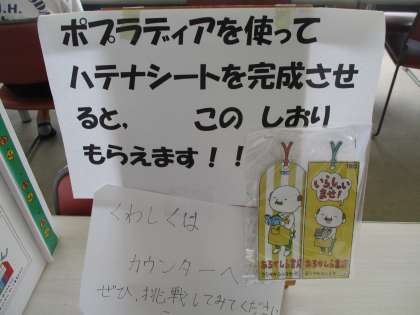 ポプラディアを使って
ハテナシートを完成させ
ると、 この しおり
もらえます！！
くわしくは
カウンターへ
ぜひ、挑戦してみてください
いらっしゃい
ませ!